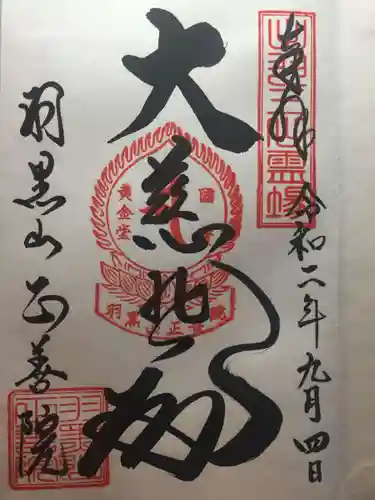 奉拝 令和二年九月四日
霊場
大慈悲
国
黄金堂
羽黒山正善院
羽黒山 正善院